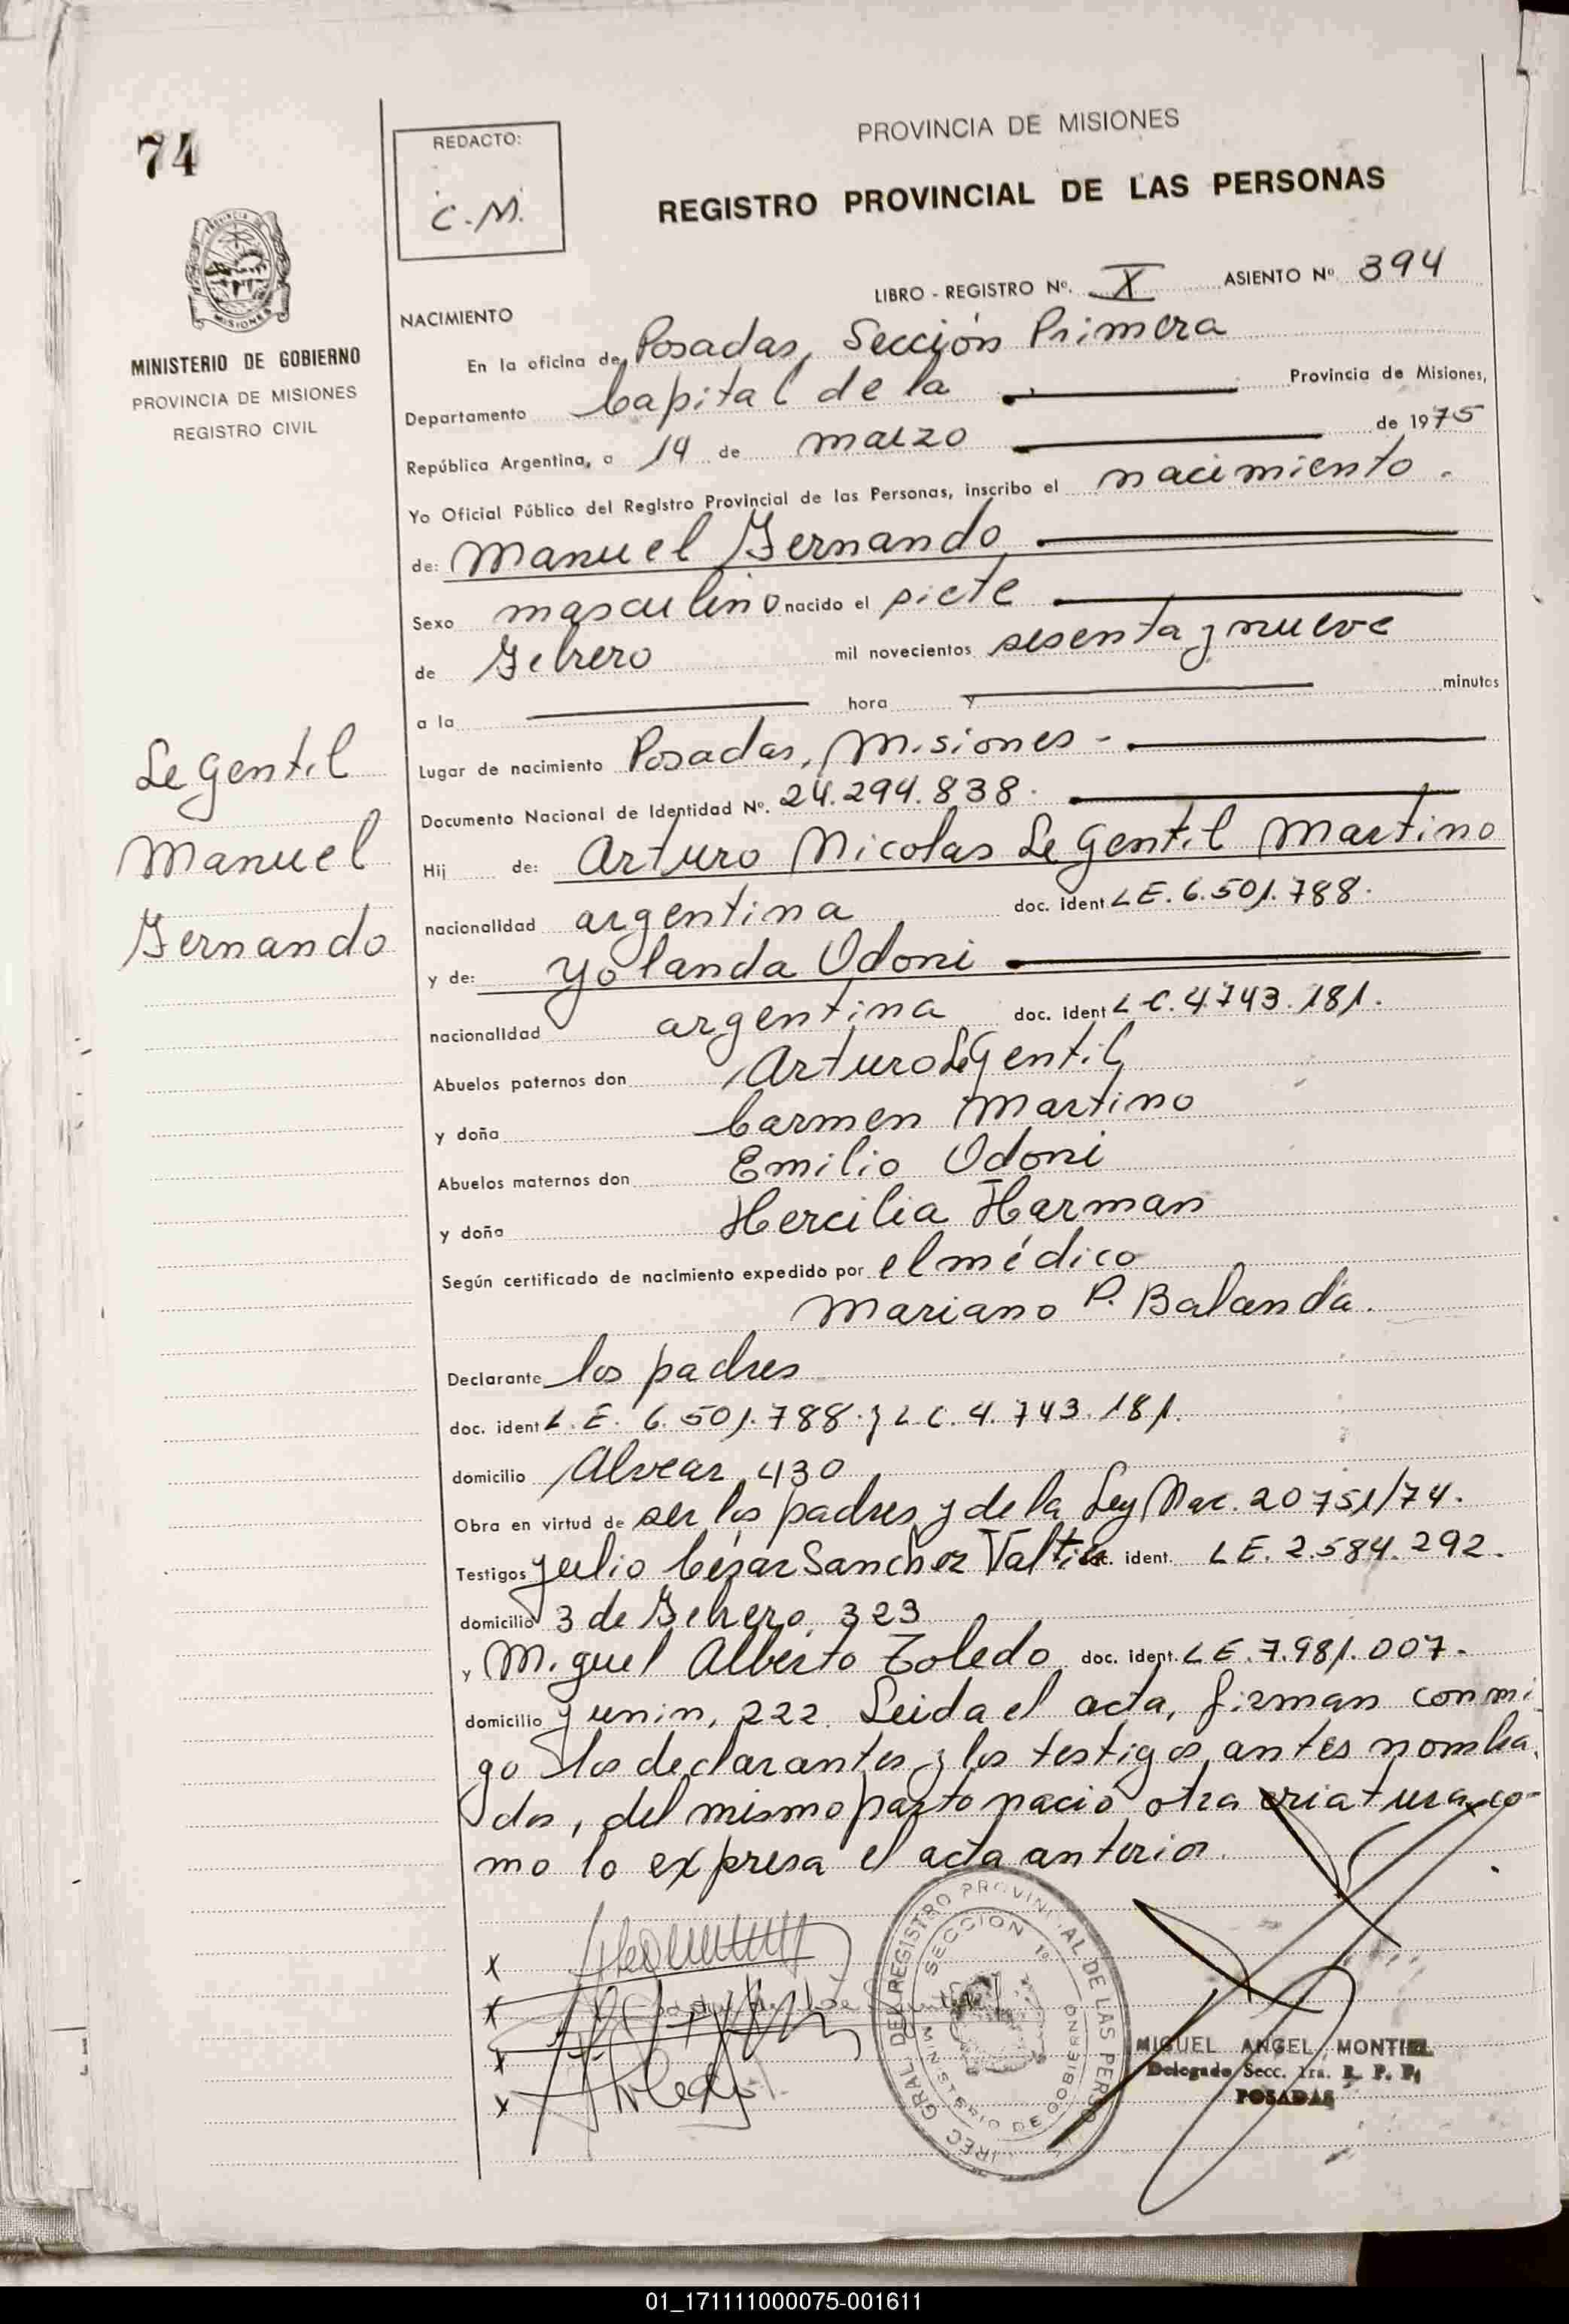 74
REDACTO:
C.M.
PROVINCIA DE MISIONES
REGISTRO PROVINCIAL DE LAS PERSONAS
LIBRO - REGISTRO Nº. X ASIENTO Nº 394
PROVINCIA DE
MISIONES
MINISTERIO DE GOBIERNO
PROVINCIA DE MISIONES
REGISTRO CIVIL
NACIMIENTO
En la oficina de Posadas, Sección Primera
Departamento Capital de la Provincia de Misiones,
República Argentina, a 14 de marzo de 1975
Yo Oficial Público del Registro Provincial de las Personas, inscribo el nacimiento.
de: Manuel Fernando
Sexo masculino nacido el siete
de Febrero mil novecientos sesenta y nueve
a la hora y minutos
Lugar de nacimiento Posadas, Misiones -
Documento Nacional de Identidad Nº. 24.294.838.
Hij de: Arturo Nicolas Le Gentil Martino
nacionalidad argentina doc. ident LE. 6.501.788.
y de: Yolanda Odoni
nacionalidad argentina doc. ident L.C. 4.743.181.
Abuelos paternos don Arturo Le Gentil
y doña Carmen Martino
Abuelos maternos don Emilio Odoni
y doña Hercilia Harman
Según certificado de nacimiento expedido por el médico
Mariano P. Balanda.
Declarante los padres
doc. ident L.E. 6.501.788. y L C. 4.743.181.
domicilio Alvear, 430
Obra en virtud de ser los padres y de la Ley Nac. 20751/74.
Testigos Julio César Sanchez ident. LE. 2.584.292.
domicilio 3 de Febrero, 323
y Miguel Alberto Toledo doc. ident. LE. 7.981.007.
domicilio Junin, 222. Leida el acta, firman conmi
go los declarantes y los testigos antes nombra
dos, del mismo parto nacio otra criatura co-
mo lo expresa el acta anterior.
Le Gentil
Manuel
Fernando
x
x
x
x
GRAL DEL REGISTRO PROVINCIAL DE LAS PERSO
SECCION 1º
MINISTERIO DE GOBIERNO
MIGUEL ANGEL MONTIEL
Delegado Secc. 1ra. R. P. P.
POSADAS
01_171111000075-001611